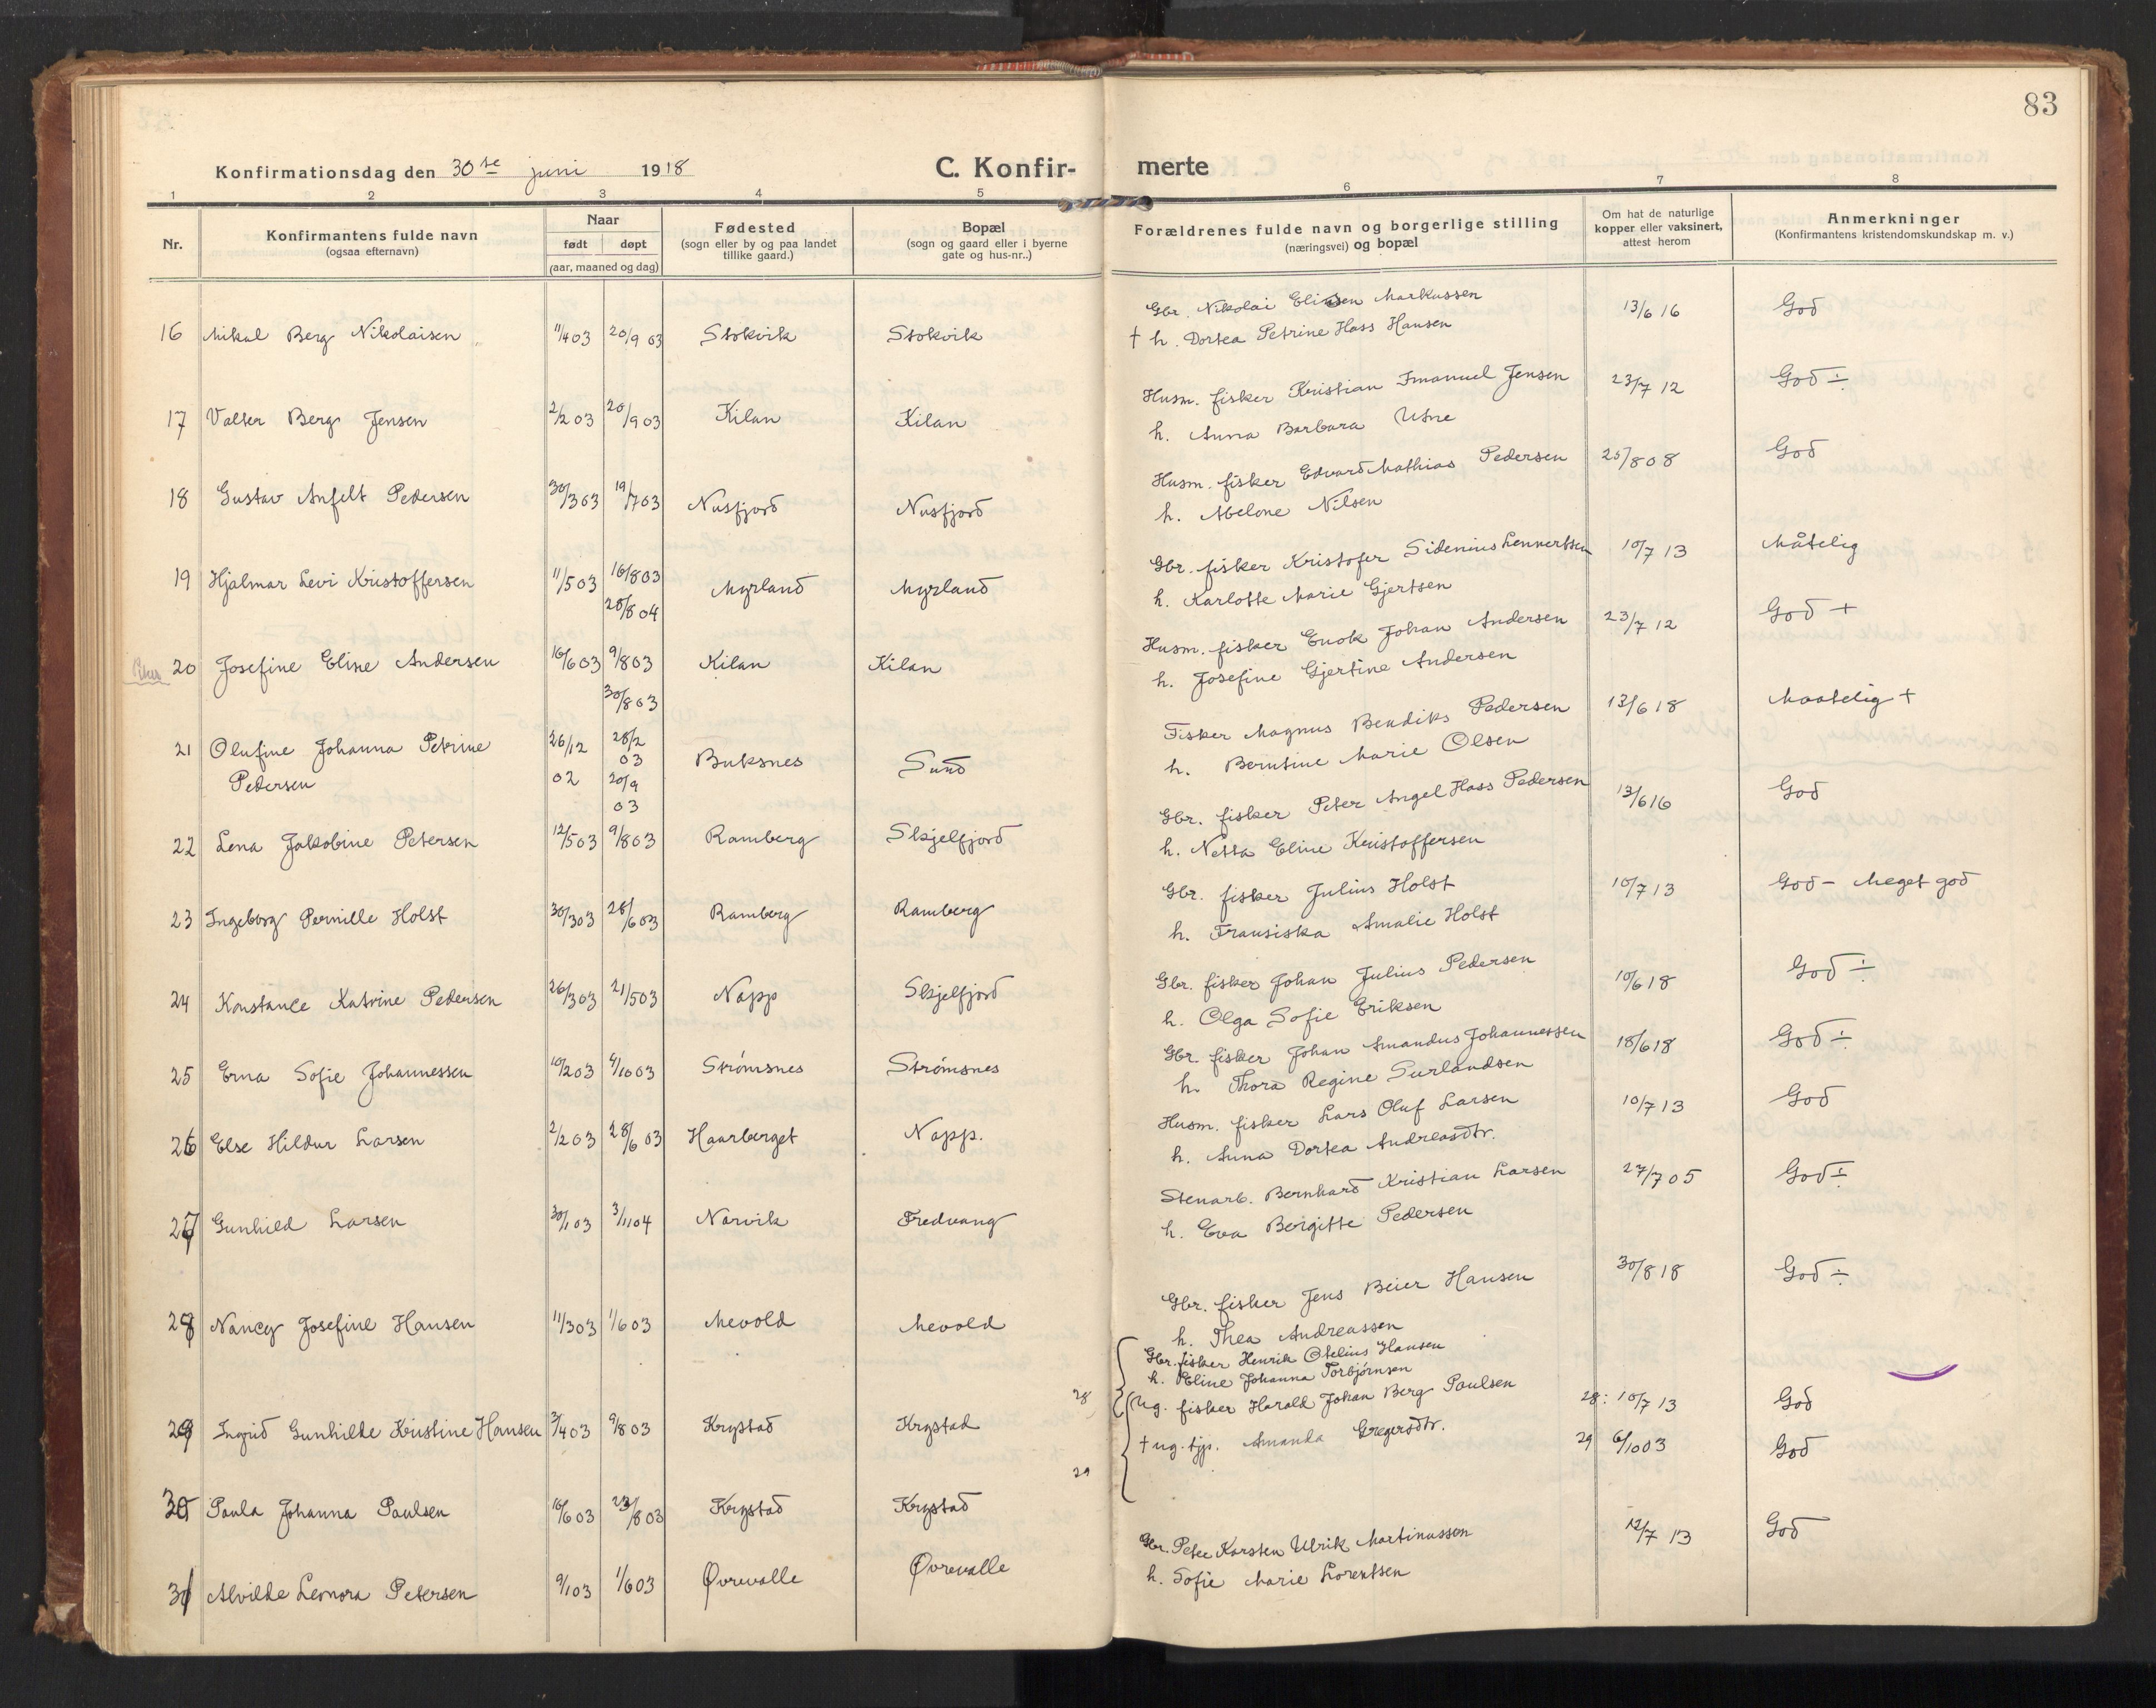 83
Konfirmationsdag den 30te juni 1918
C. Konfir-
merte
1 2 3 4 5 6 7 8
Nr.
Konfirmantens fulde navn
(ogsaa efternavn)
Naar
født døpt
(aar, maaned og dag)
Fødested
(sogn eller by og paa landet
tillike gaard.)
Bopæl
(sogn og gaard eller i byerne
gate og hus-nr..)
Forældrenes fulde navn og borgerlige stilling
(næringsvei) og bopæl
Om hat de naturlige
kopper eller vaksinert,
attest herom
Anmerkninger
(Konfirmantens kristendomskundskap m. v.)
16 Mikal Berg Nikolaisen 11/4 03 20/9 03 Stokvik Stokvik
Gbr. Nikolai Elisen Markussen 13/6 16 God
† h. Dortea Petrine Hass Hansen
17 Valter Berg Jensen 2/2 03 20/9 03 Kilan Kilan
Husm. fisker Kristian Imanuel Jensen 23/7 12 God ÷
h. Anna Barbara Utne
18 Gustav Anfelt Pedersen 30/3 03 19/7 03 Nusfjord Nusfjord
Husm. fisker Edvard Mathias Pedersen 25/8 08 God
h. Melone Nilsen
19 Hjalmar Levi Kristoffersen 11/5 03 16/8 03 Myrland Myrland
28/8 04
Gbr. fisker Kristofer Sidenius Lennertsen 10/7 13 Måtelig
h. Karlotte Marie Gjertsen
20 Josefine Eline Andersen 16/6 03 9/8 03 Kilan Kilan
30/8 03
Husm. fisker Enok Johan Andersen 23/7 12 God +
h. Josefine Gjertine Andersen
21 Olufine Johanna Petrine 26/12 28/2
Pedersen 02 03 Buksnes Sund
20/9
03
Fisker Magnus Bendiks Pedersen 13/6 18 Maatelig +
h. Berntine Marie Olsen
22 Lena Jakobine Petersen 12/5 03 9/8 03 Ramberg Skjelfjord
Gbr. fisker Peter Angel Hass Pedersen 13/6 16 God
h. Netta Eline Kristoffersen
23 Ingeborg Pernille Holst 30/3 03 28/6 03 Ramberg Ramberg
Gbr. fisker Julius Holst 10/7 13 God - Meget god
h. Fransiska Amalie Holst
24 Konstance Katrine Pedersen 26/3 03 21/5 03 Napp Skjelfjord
Gbr. fisker Johan Julius Pedersen 10/6 18 God ÷
h. Olga Sofie Eriksen
25 Erna Sofie Johannessen 10/2 03 4/10 03 Strømsnes Strømsnes
Gbr. fisker Johan Amandus Johannessen 18/6 18 God ÷
h. Thora Regine Surlandsen
26 Else Hildur Larsen 2/2 03 28/6 03 Haarberget Napp.
Husm. fisker Lars Oluf Larsen 10/7 13 God
h. Anna Dortea Andreasdtr.
27 Gunhild Larsen 30/1 03 3/1 04 Narvik Fredvang
Stenarb. Bernhard Kristian Larsen 27/7 05 God ÷
h. Eva Bergitte Pedersen
28 Nancy Josefine Hansen 11/3 03 1/6 03 Mevold Mevold
Gbr. fisker Jens Beier Hansen 30/8 18 God ÷
h. Thea Andreassen
29 Ingrid Gunhilde Kristine Hansen 3/4 03 9/8 03 Krystad Krystad
28 Gbr. fisker Henrik Otelius Hansen
h. Eline Johanna Torbjørnsen 28: 10/7 13 God
30 Paula Johanna Paulsen 16/6 03 23/8 03 Krystad Krystad
29 Ug. fisker Harald Johan Berg Paulsen
† ug. tjp. Amanda Gregersdtr. 29 6/10 03 God
31 Alvilde Leonora Petersen 9/1 03 1/6 03 Øvrevalle Øvrevalle
Gbr. Peter Karsten Ulrik Martinussen 12/7 13 God
h. Sofie Marie Lorentsen